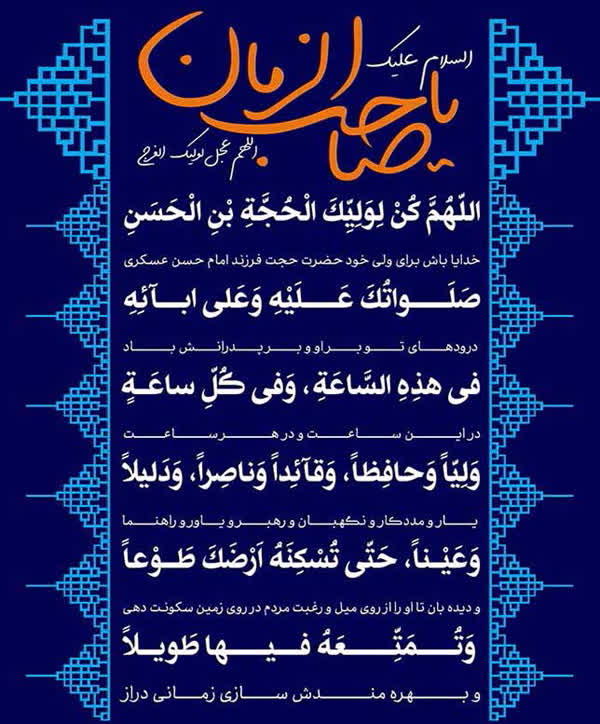 السلام علیک
یا صاحب الزمان
اللهم عجل لولیک الفرج
اللّهُمَّ كُنْ لِوَلِيِّكَ الْحُجَّةِ بْنِ الْحَسَنِ
خدایا باش برای ولی خود حضرت حجت فرزند امام حسن عسکری
صَلَـــواتُكَ عَلَـــيْهِ وَعَلى ابـــآئِهِ
درودهـــای تـــو بـر او و بـــر پـدرانـــش بـــاد
في هذِهِ السَّاعَةِ، وَفي كُلِّ ساعَـةٍ
در ایـن ســاعـت و در هـر ســاعـت
وَلِيّاً وَحافِظاً، وَقآئِداً وَناصِراً، وَدَليلاً
یــار و مـددکار و نگهبــان و رهبــر و یــاور و راهنمــا
وَعَيْـناً، حَتّى تُسْكِنَهُ اَرْضَكَ طَـوْعاً
و دیده بان تا او را از روی میل و رغبت مردم در روی زمین سکونت دهی
وَتُـــمَتِّـــعَهُ فـــيـــها طَويـــلاً
و بـــهـره منـــدش ســـازی زمـــانی دراز